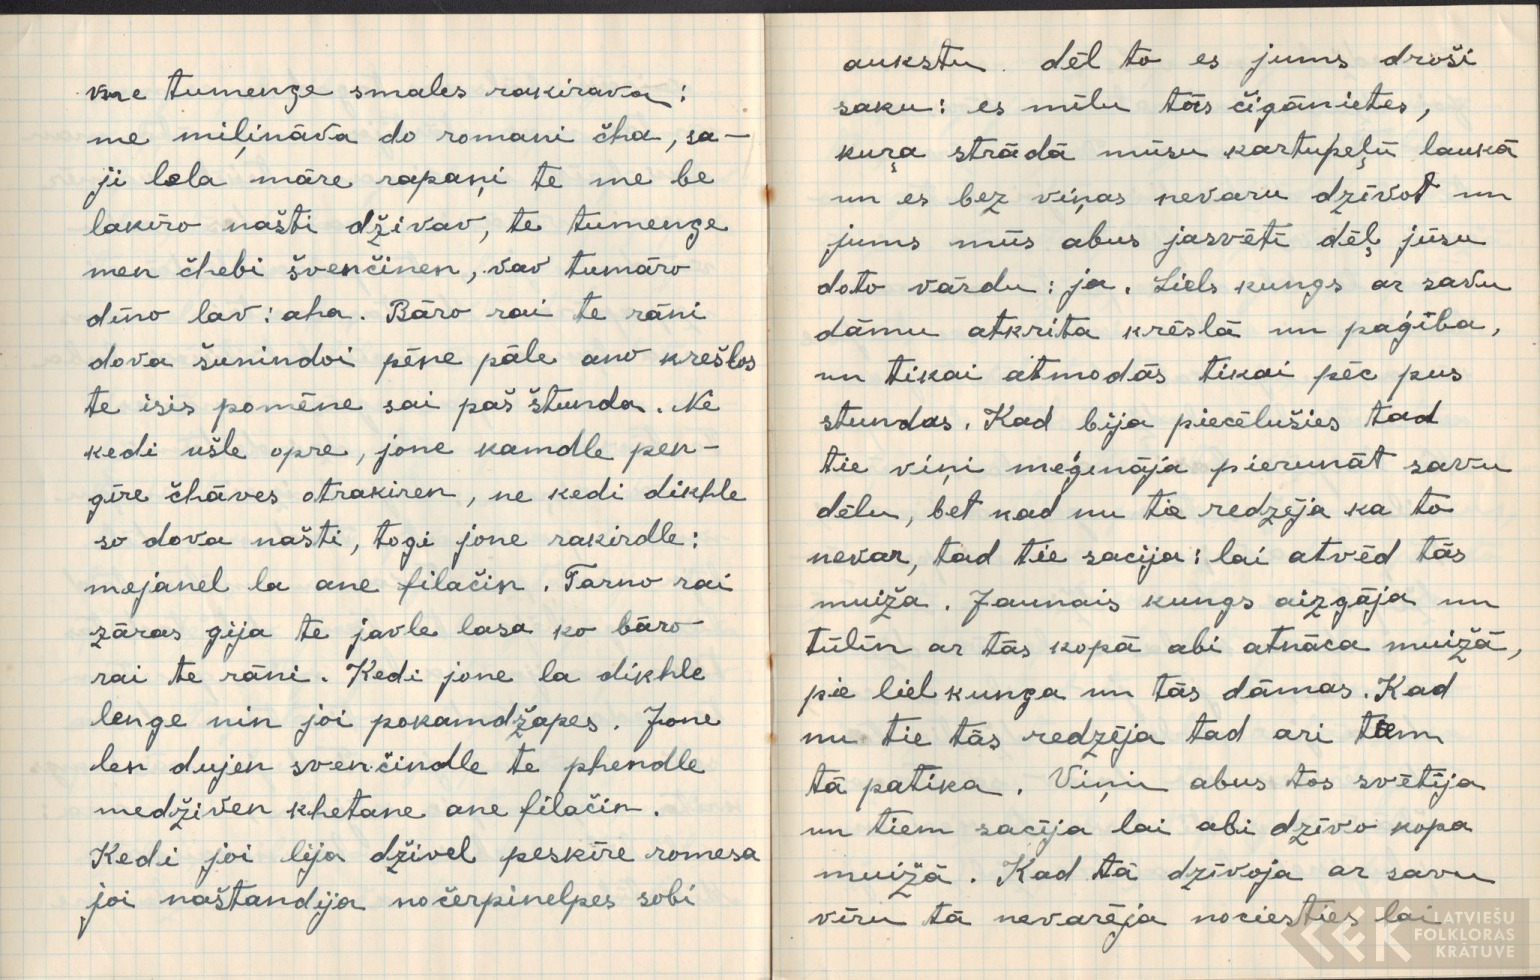 me tumenge smales rakirava:
me miļināva do romani čha, sa-
ji lola māre rapaņi te me be
lakīro našti dživav, te tumenge
men čhebi švenčinen, vav tumāro
dīno lav: aha. Bāro rai te rāni
dova šunindoi pēne pāle ano krešlos
te isis pomēne sai paš štunda. Ne
kedi ušle opre, jone kamdle pen-
gīre čhāves otrakiren, ne kedi dikhle
so dova našti, togi jone rakirdle:
mejanel la ane filačin. Tarno rai
zāras gija te javle lasa ko bāro
rai te rāni. Kedi jone la dikhle
lenge nin joi pokamdžapes. Jone
len dujen svenčindle te phendle
medživen khetane ane filačin.
Kedi joi lija dživel peskīre romesa
joi naštandija nočerpinelpes sobi
aukstu. dēl to es jums droši
saku: es mīlu tās čigānietes,
kuŗa strādā mūsu kartupeļū laukā
un es bez viņas nevaru dzīvot un
jums mūs abus jasvētī dēļ jūsu
doto vārdu: ja. Liels kungs ar savu
dāmu atkrita krēslā un paģība,
un tikai atmodās tikai pēc pus
stundas. Kad bija piecēlušies tad
tie viņi meģināja pierunāt savu
dēlu, bet kad nu tie redzēja ka to
nevar, tad tie sacija: lai atvēd tās
muiža. Jaunais kungs aizgāja un
tūlīn ar tās kopā abi atnāca muižā,
pie liel kunga un tās dāmas. Kad
nu tie tās redzēja tad ari tiem
tā patika. Viņi abus tos svētīja
un tiem sacīja lai abi dzīvo kopa
muižā. Kad tā dzīvoja ar savu
vīru tā nevarēja nociesties lai
LATVIEŠU
FOLKLORAS
KRĀTUVE